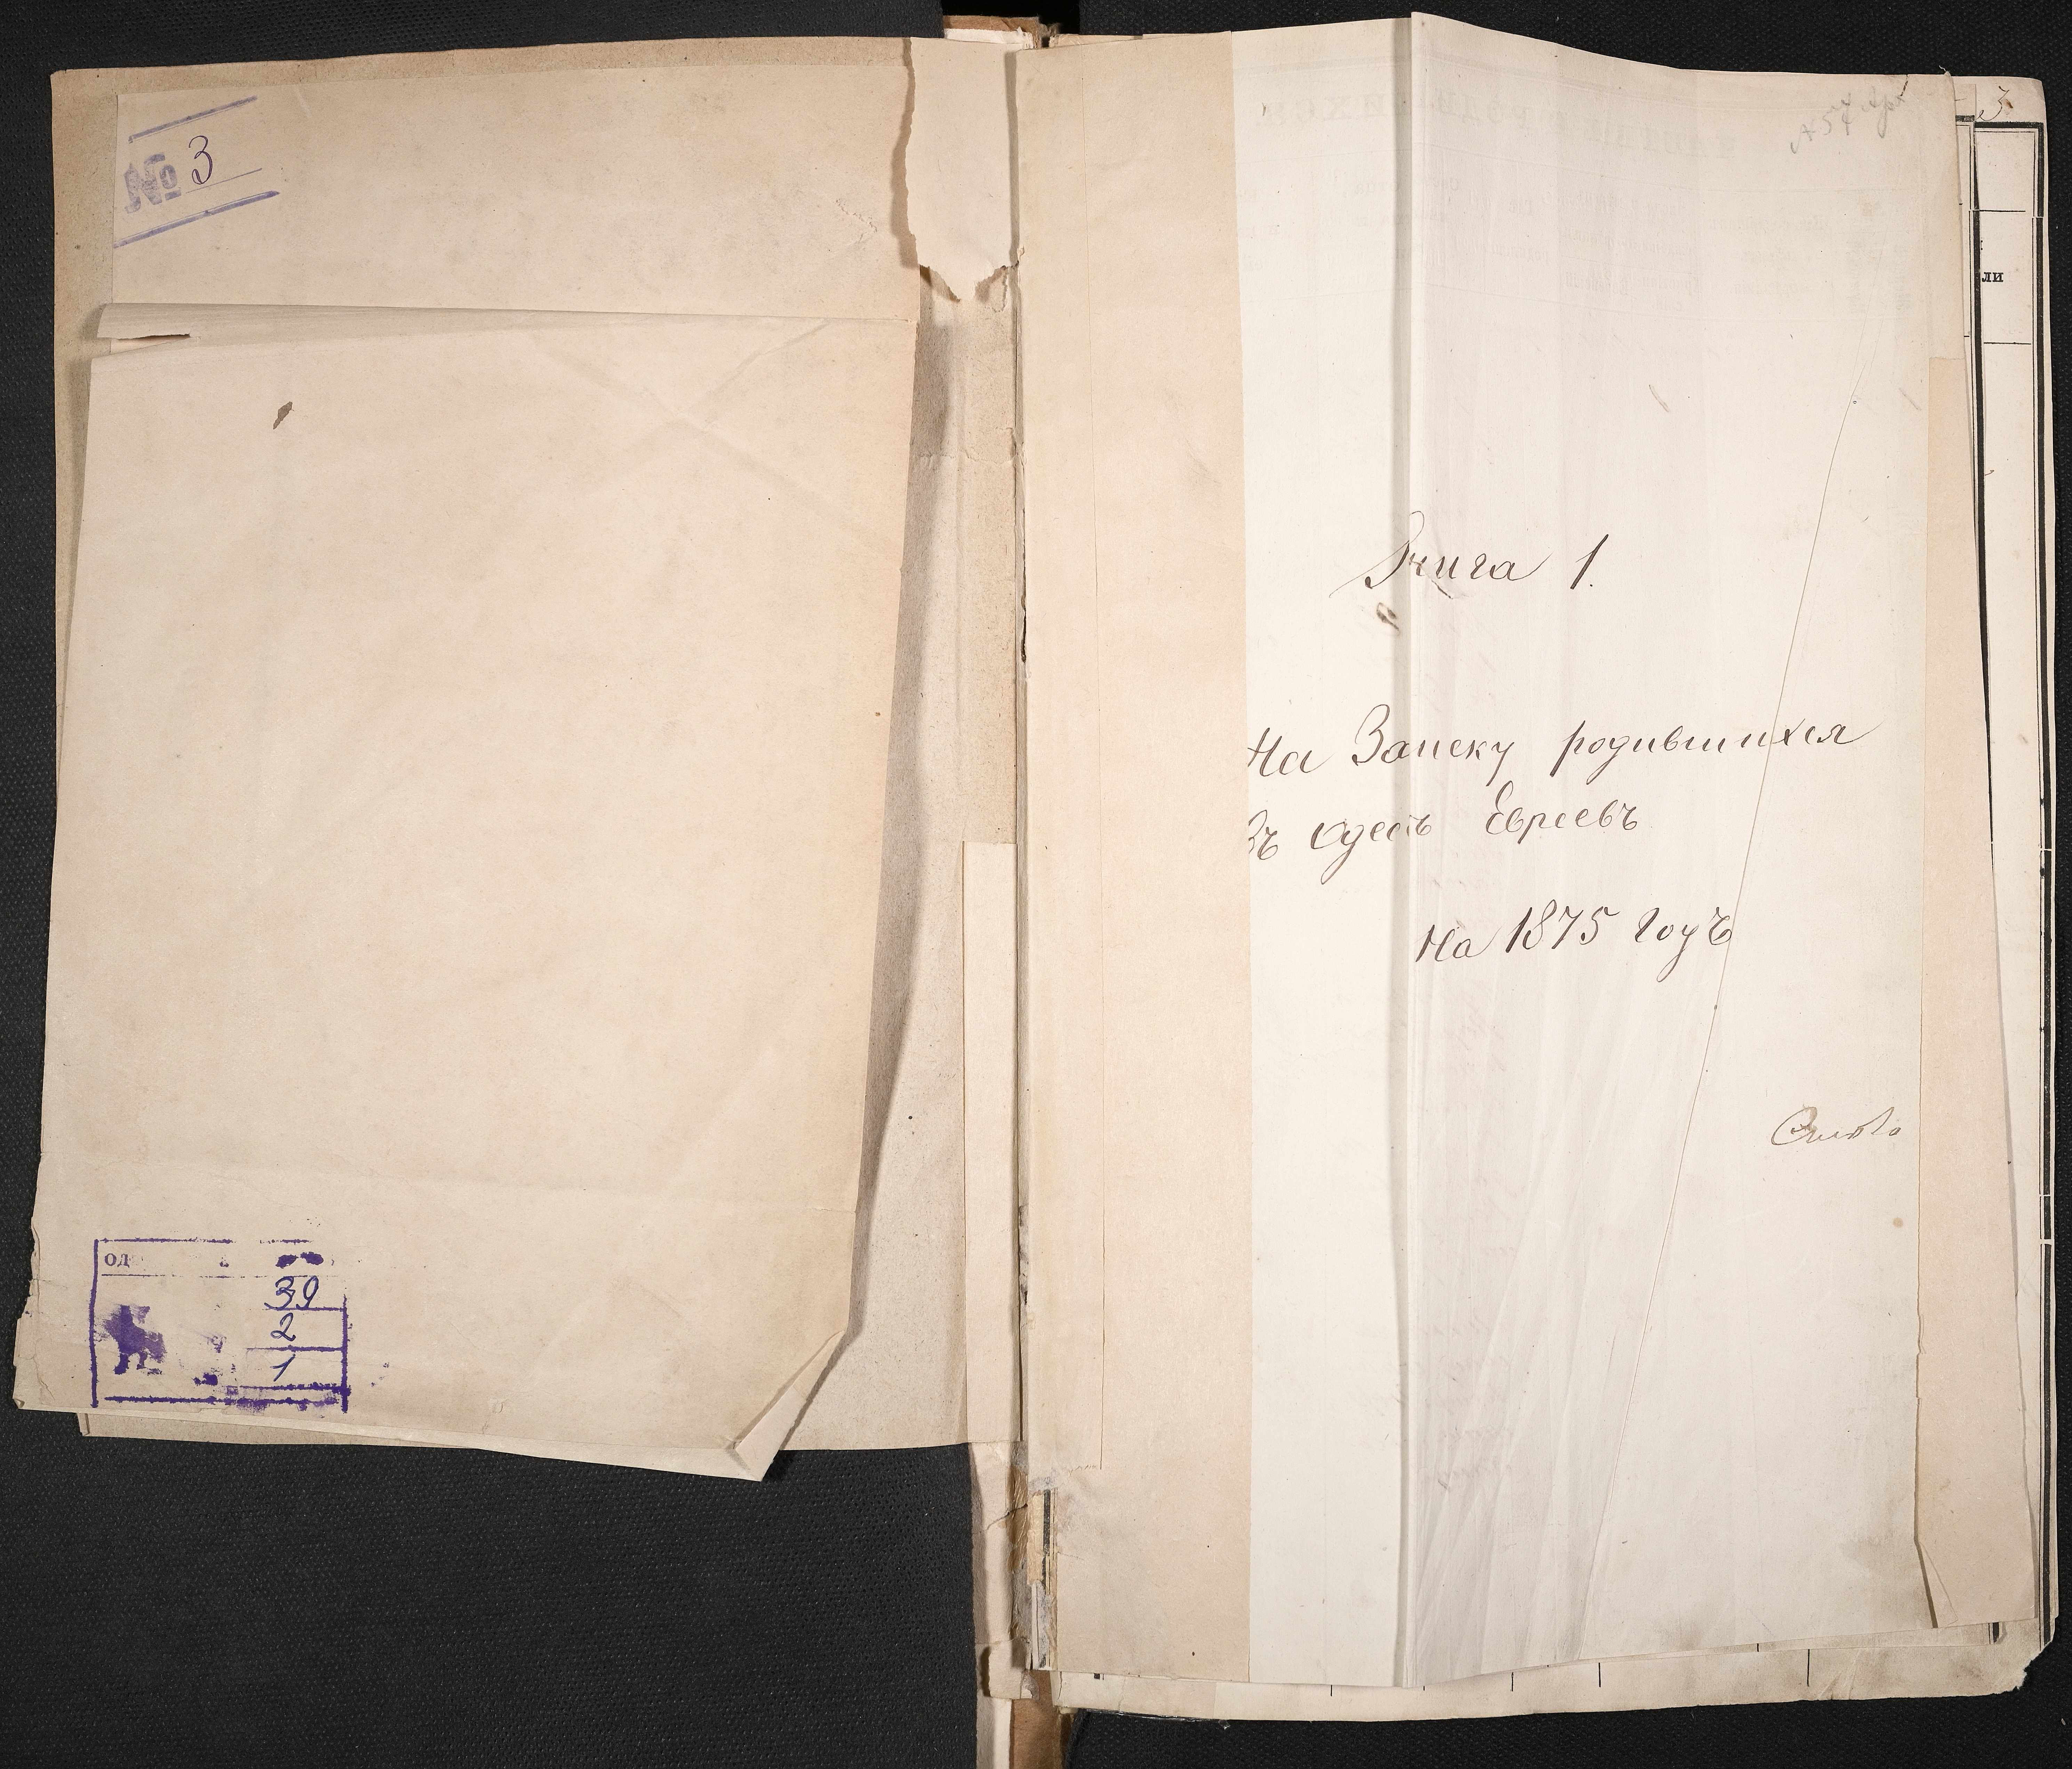 № 3
ОД
39
2
1
3
ли
Книга 1.
На Записку родившихся
Въ Одессѣ Евреевъ
На 1875 Годъ